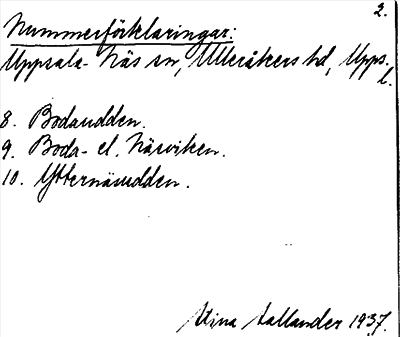 2.
Nummerförklaringar:
Uppsala-Näs sn, Ulleråkers hd, Upps.
l.
8. Bodaudden.
9. Boda- el. Näsviken.
10. Ytternäsudden.
Stina Sallander 1937.